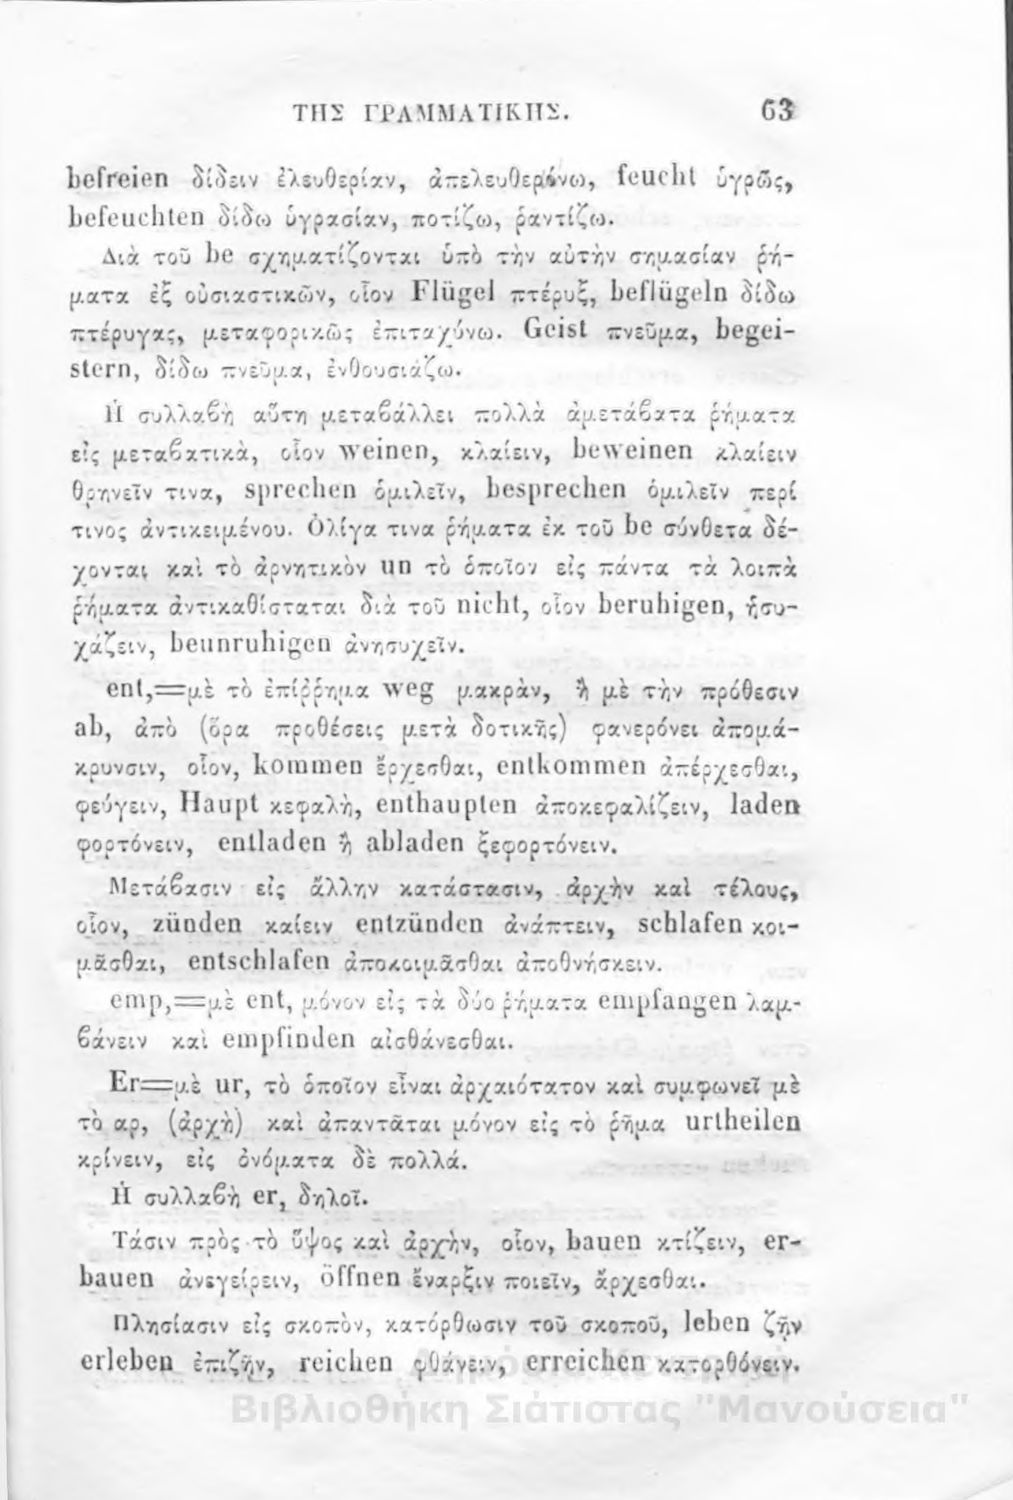 ΤΗΣ ΓΡΑΜΜΑΤΙΚΗΣ. 63
befreien δίδειν ἐλευθερίαν, ἀπελευθερόνω, feucht ὑγρῶς,
befeuchten δίδω ὑγρασίαν, ποτίζω, ῥαντίζω.
Διὰ τοῦ be σχηματίζονται ὑπὸ τὴν αὐτὴν σημασίαν ῥή-
ματα ἐξ οὐσιαστικῶν, οἷον Flügel πτέρυξ, beflügeln δίδω
πτέρυγας, μεταφορικῶς ἐπιταχύνω. Geist πνεῦμα, begei-
stern, δίδω πνεῦμα, ἐνθουσιάζω.
Ἡ συλλαβὴ αὕτη μεταβάλλει πολλὰ ἀμετάβατα ῥήματα
εἰς μεταβατικὰ, οἷον weinen, κλαίειν, beweinen κλαίειν
θρηνεῖν τινα, sprechen ὁμιλεῖν, besprechen ὁμιλεῖν περί
τινος ἀντικειμένου. Ὀλίγα τινα ῥήματα ἐκ τοῦ be σύνθετα δέ-
χονται καὶ τὸ ἀρνητικὸν un τὸ ὁποῖον εἰς πάντα τὰ λοιπὰ
ῥήματα ἀντικαθίσταται διὰ τοῦ nicht, οἷον beruhigen, ἡσυ-
χάζειν, beunruhigen ἀνησυχεῖν.
ent,=μὲ τὸ ἐπίῤῥημα weg μακρὰν, ἢ μὲ τὴν πρόθεσιν
ab, ἀπὸ (ὅρα προθέσεις μετὰ δοτικῆς) φανερόνει ἀπομά-
κρυνσιν, οἷον, kommen ἔρχεσθαι, entkommen ἀπέρχεσθαι,
φεύγειν, Haupt κεφαλὴ, enthaupten ἀποκεφαλίζειν, laden
φορτόνειν, entladen ἢ abladen ξεφορτόνειν.
Μετάβασιν εἰς ἄλλην κατάστασιν, ἀρχὴν καὶ τέλους,
οἷον, zünden καίειν entzünden ἀνάπτειν, schlafen κοι-
μᾶσθαι, entschlafen ἀποκοιμᾶσθαι ἀποθνήσκειν.
emp,=μὲ ent, μόνον εἰς τὰ δύο ῥήματα empfangen λαμ-
βάνειν καὶ empfinden αἰσθάνεσθαι.
Er=μὲ ur, τὸ ὁποῖον εἶναι ἀρχαιότατον καὶ συμφωνεῖ μὲ
τὸ αρ, (ἀρχὴ) καὶ ἀπαντᾶται μόνον εἰς τὸ ῥῆμα urtheilen
κρίνειν, εἰς ὀνόματα δὲ πολλά.
Ἡ συλλαβὴ er, δηλοῖ.
Τάσιν πρὸς τὸ ὕψος καὶ ἀρχὴν, οἷον, bauen κτίζειν, er-
bauen ἀνεγείρειν, öffnen ἔναρξιν ποιεῖν, ἄρχεσθαι.
Πλησίασιν εἰς σκοπὸν, κατόρθωσιν τοῦ σκοποῦ, leben ζῇν
erleben ἐπιζῇν, reichen φθάνειν, erreichen κατορθόνειν.
Βιβλιοθήκη Σιάτιστας "Μανούσεια"